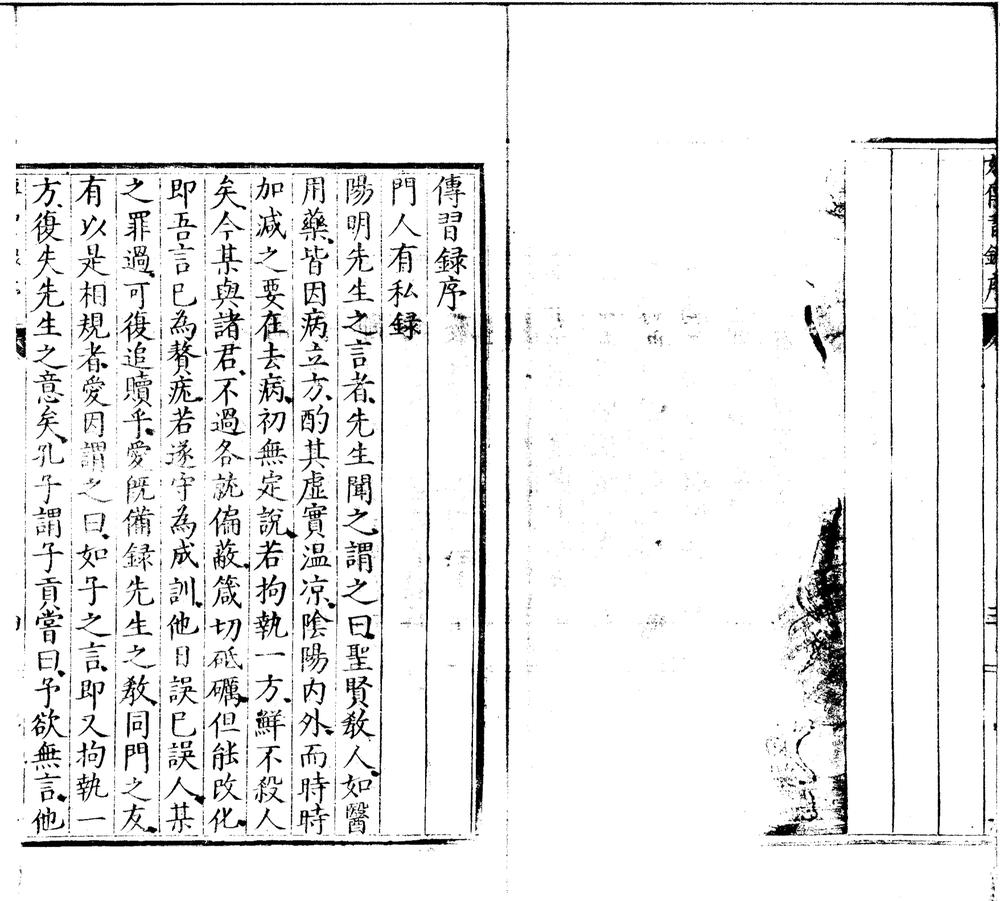 傳習録序
門人有私録
陽明先生之言者先生聞之謂之曰聖賢教人如醫
用藥皆因病立方酌其虛實温凉陰陽内外而時時
加減之要在去病初無定說若拘執一方鮮不殺人
矣今某與諸君不過各就偏蔽箴切砥礪但能改化
即吾言已為贅疣若遂守為成訓他日誤已誤人某
之罪過可復追贖乎愛既備録先生之教同門之友
有以是相規者愛因謂之曰如子之言即又拘執一
方復失先生之意矣孔子謂子貢嘗曰予欲無言他